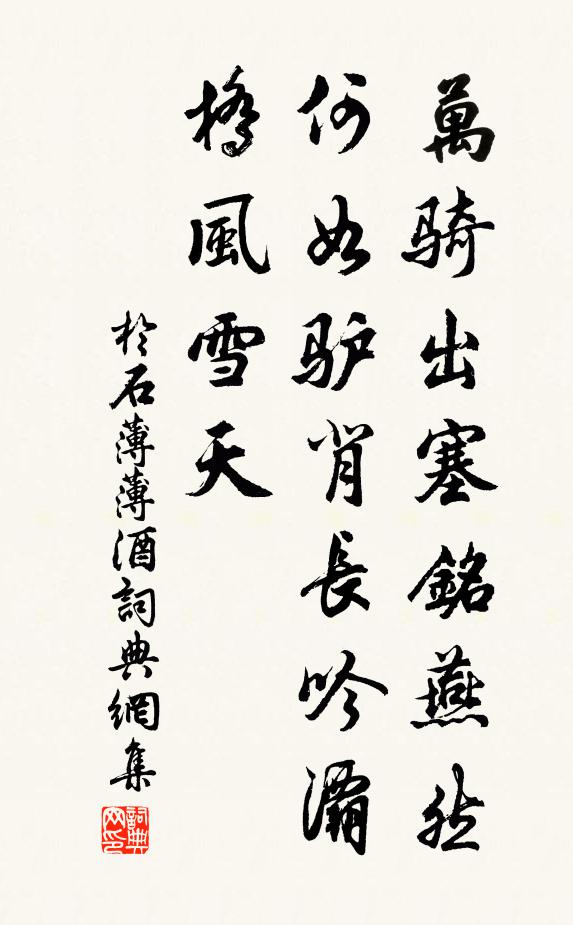 萬骑出塞銘燕然
何如驴背長吟灞
橋風雪天
於石薄薄酒詞典網集
詞典
网印